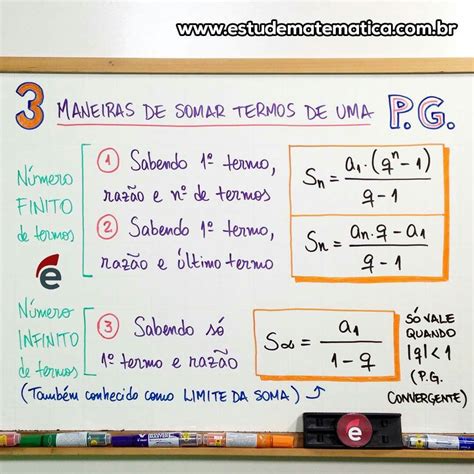 www.estudematematica.com.br
3 MANEIRAS DE SOMAR TERMOS DE UMA P.G.
Número
FINITO
de termos
① Sabendo 1º termo,
razão e nº de termos
Sn = a1 · (q^n − 1) / q − 1
② Sabendo 1º termo,
razão e último termo
Sn = an · q − a1 / q − 1
e
Número
INFINITO
de termos
③ Sabendo só
1º termo e razão
S∞ = a1 / 1 − q
SÓ VALE
QUANDO
|q| < 1
(P.G.
CONVERGENTE)
(Também conhecido como LIMITE DA SOMA)
e